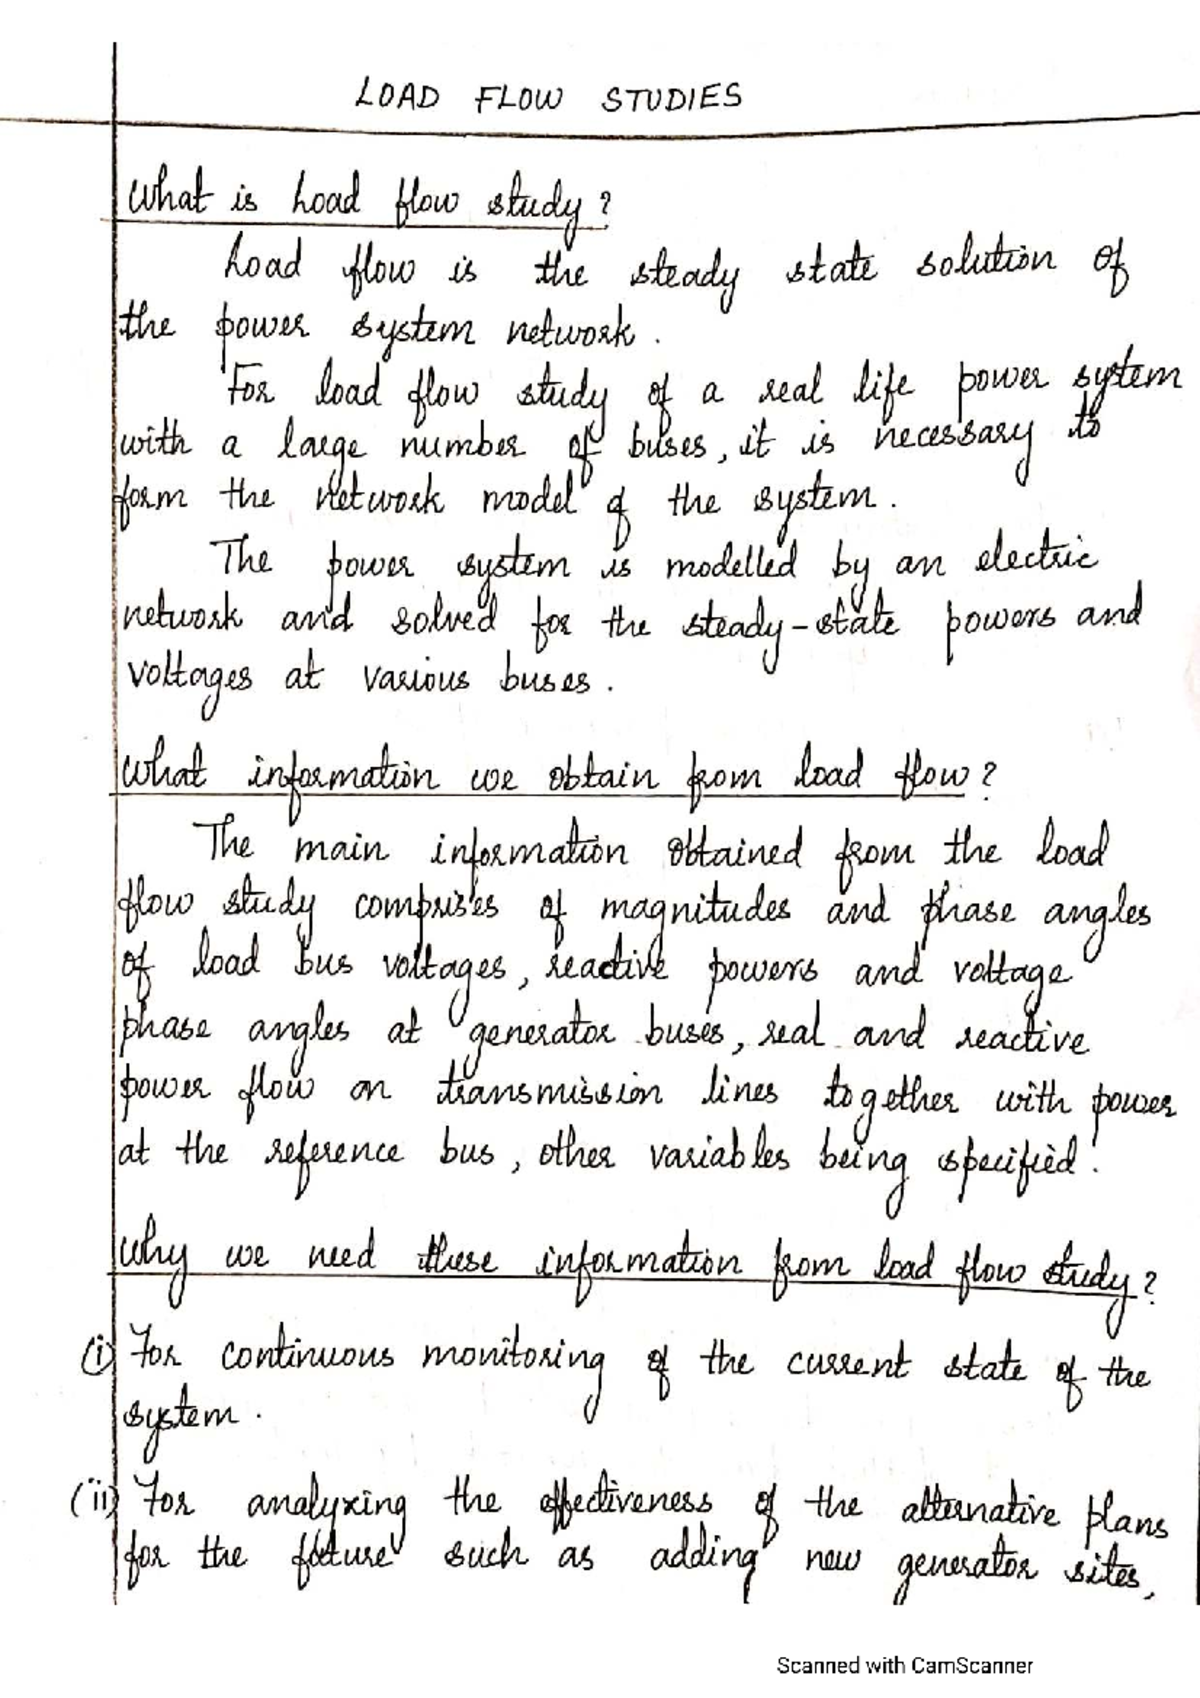 LOAD FLOW STUDIES
What is Load flow study?
Load flow is the steady state solution of
the power system network.
For load flow study of a real life power system
with a large number of buses, it is necessary to
form the network model of the system.
The power system is modelled by an electric
network and solved for the steady-state powers and
voltages at various buses.
What information we obtain from load flow?
The main information obtained from the load
flow study comprises of magnitudes and phase angles
of load bus voltages, reactive powers and voltage
phase angles at generator buses, real and reactive
power flow on transmission lines together with power
at the reference bus, other variables being specified.
Why we need these information from load flow study?
(i) For continuous monitoring of the current state of the
system.
(ii) For analyzing the effectiveness of the alternative plans
for the future such as adding new generator sites,
Scanned with CamScanner